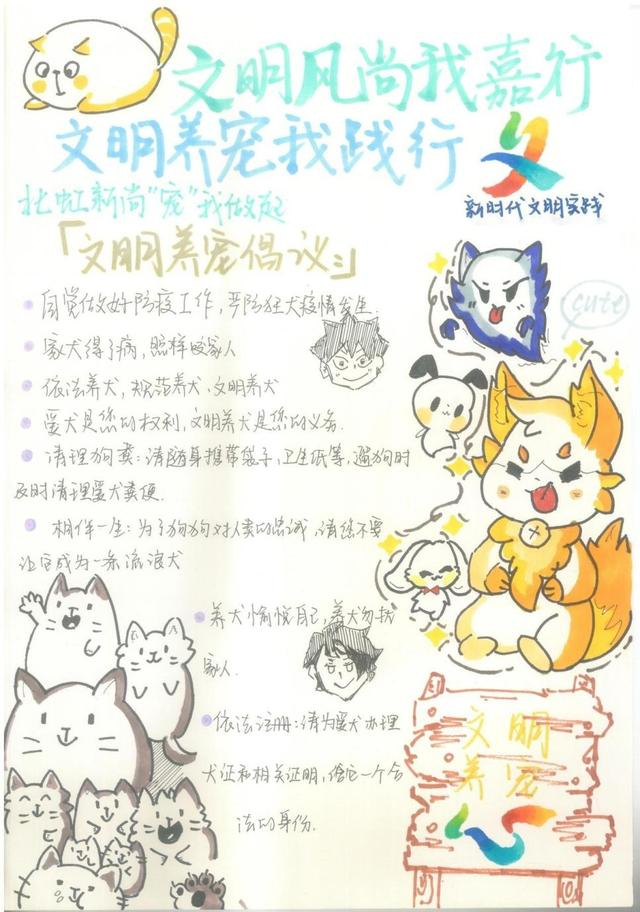 文明风尚我嘉行
文明养宠我践行
新时代文明实践
北虹新尚“宠”我做起
「文明养宠倡议:」
cute
自觉做好防疫工作,严防狂犬疫情发生.
家犬得了病,照样咬家人
依法养犬,规范养犬、文明养犬
爱犬是您的权利,文明养犬是您的义务.
清理狗粪:请随身携带袋子,卫生纸等,遛狗时
及时清理爱犬粪便.
相伴一生:为了狗狗对人类的忠诚,请您不要
让它成为一条流浪犬
养犬愉悦自己,养犬勿扰
家人.
依法注册:请为爱犬办理
犬证和相关证明,给它一个合
法的身份.
文明
养宠